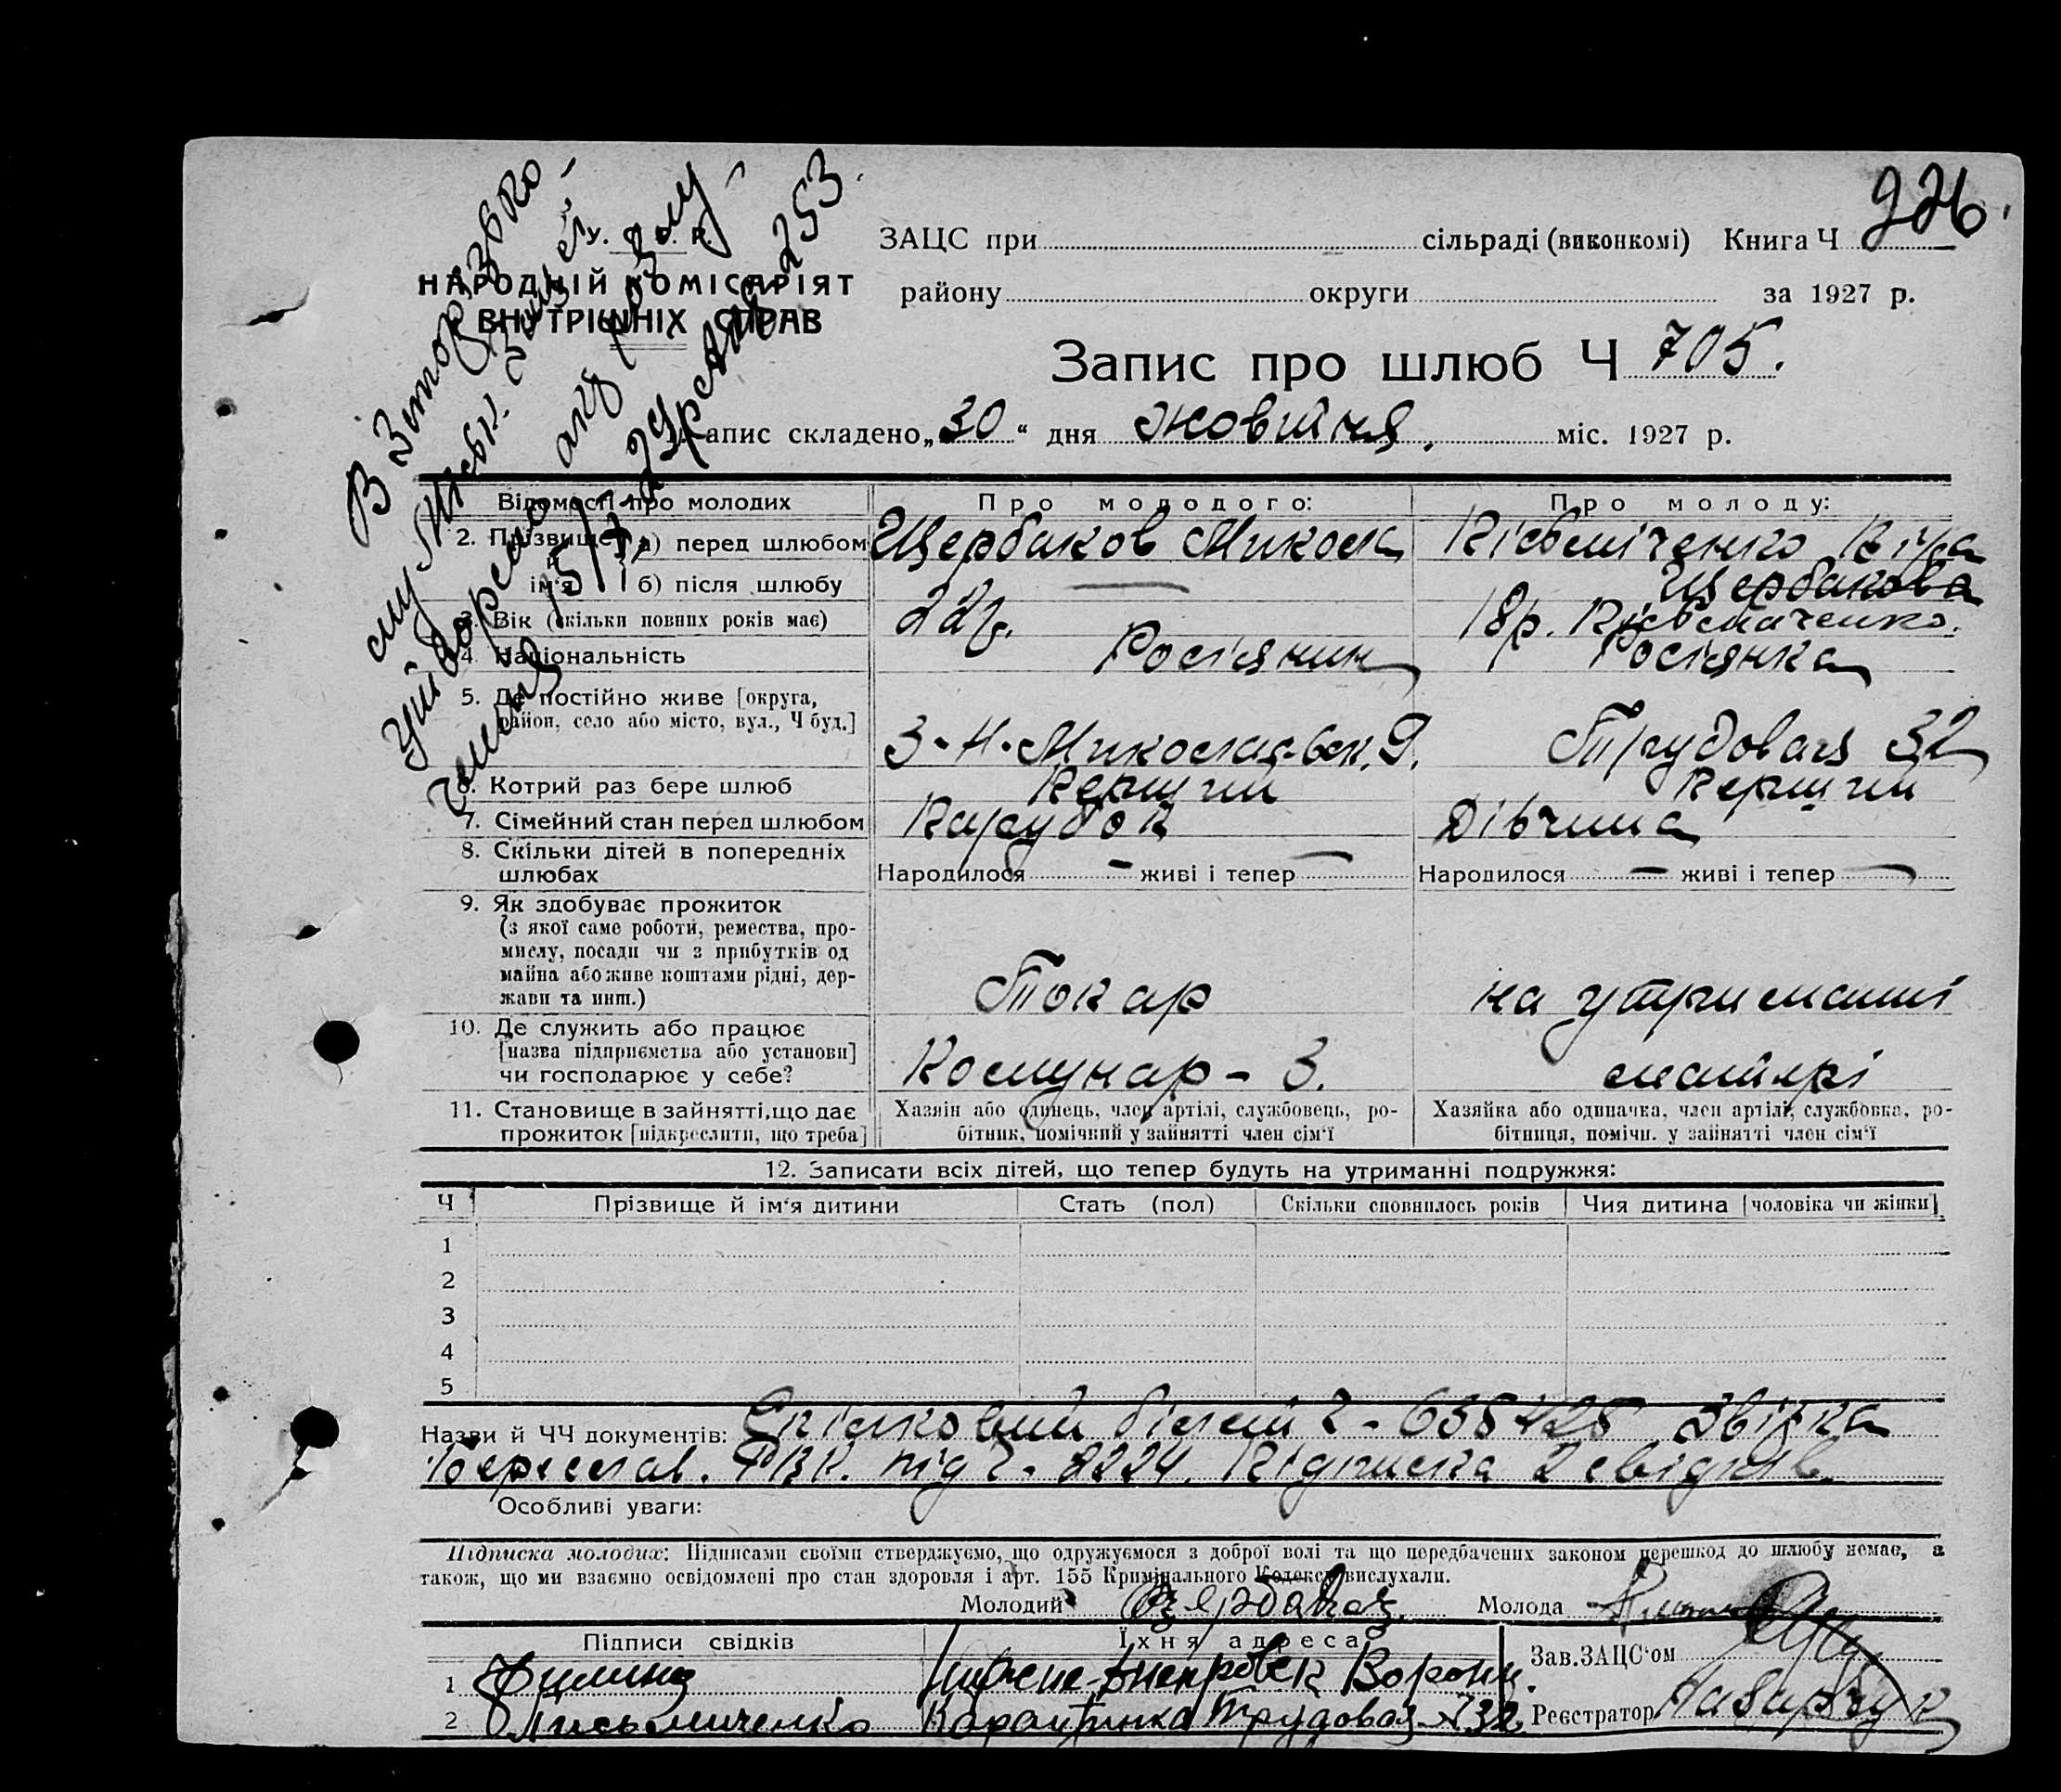 226.
У. С. Р. Р.
НАРОДНІЙ КОМІСАРІЯТ
ВНУТРІШНІХ СПРАВ
ЗАЦС при сільраді (виконкомі) Книга Ч
району округи за 1927 р.
Запис про шлюб Ч 705.
Запис складено „30“ дня Жовтня. міс. 1927 р.
253
Відомості про молодих
Про молодого:
Про молоду:
2. Прізвище й ім'я
а) перед шлюбом
Щербаков Микола
Письмиченко Віра
б) після шлюбу
—
Щербакова
Письмиченко.
3. Вік (скільки повних років має)
22р.
18р.
4. Національність
Росіянин
Росіянка
5. Де постійно живе [округа,
район, село або місто, вул., Ч буд.]
Трудовая 32
6. Котрий раз бере шлюб
Перший
Перший
7. Сімейний стан перед шлюбом
Парубок
Дівчина
8. Скільки дітей в попередніх
шлюбах
Народилося — живі і тепер —
Народилося — живі і тепер —
9. Як здобуває прожиток
(з якої саме роботи, ремества, про-
мислу, посади чи з прибутків од
майна або живе коштами рідні, дер-
жави та инш.)
Токар
на утриманні
10. Де служить або працює
[назва підприємства або установи]
чи господарює у себе?
Комунар - З.
матері
11. Становище в зайнятті, що дає
прожиток [підкреслити, що треба]
Хазяін або одинець, член артілі, службовець, ро-
бітник, помічний у зайнятті член сім'ї
Хазяйка або одиначка, член артілі, службовка, ро-
бітниця, помічн. у зайнятті член сім'ї
12. Записати всіх дітей, що тепер будуть на утриманні подружжя:
Ч Прізвище й ім'я дитини Стать (пол) Скільки сповнилось років Чия дитина [чоловіка чи жінки]
1
2
3
4
5
Назви й ЧЧ документів: Спілковий білет Ч - 638425 Звідка
РВК. під Ч. 8224. Підписка 2 свідків
Особливі уваги:
Підписка молодих: Підписами своїми стверджуємо, що одружуємося з доброї волі та що передбачених законом перешкод до шлюбу немає, а
також, що ми взаємно освідомлені про стан здоровля і арт. 155 Кримінального Кодексу вислухали.
Молодий Щербаков Молода
Підписи свідків
Їхня адреса
Зав.ЗАЦС'ом
1
2 Письмиченко Трудовая 32
Реєстратор